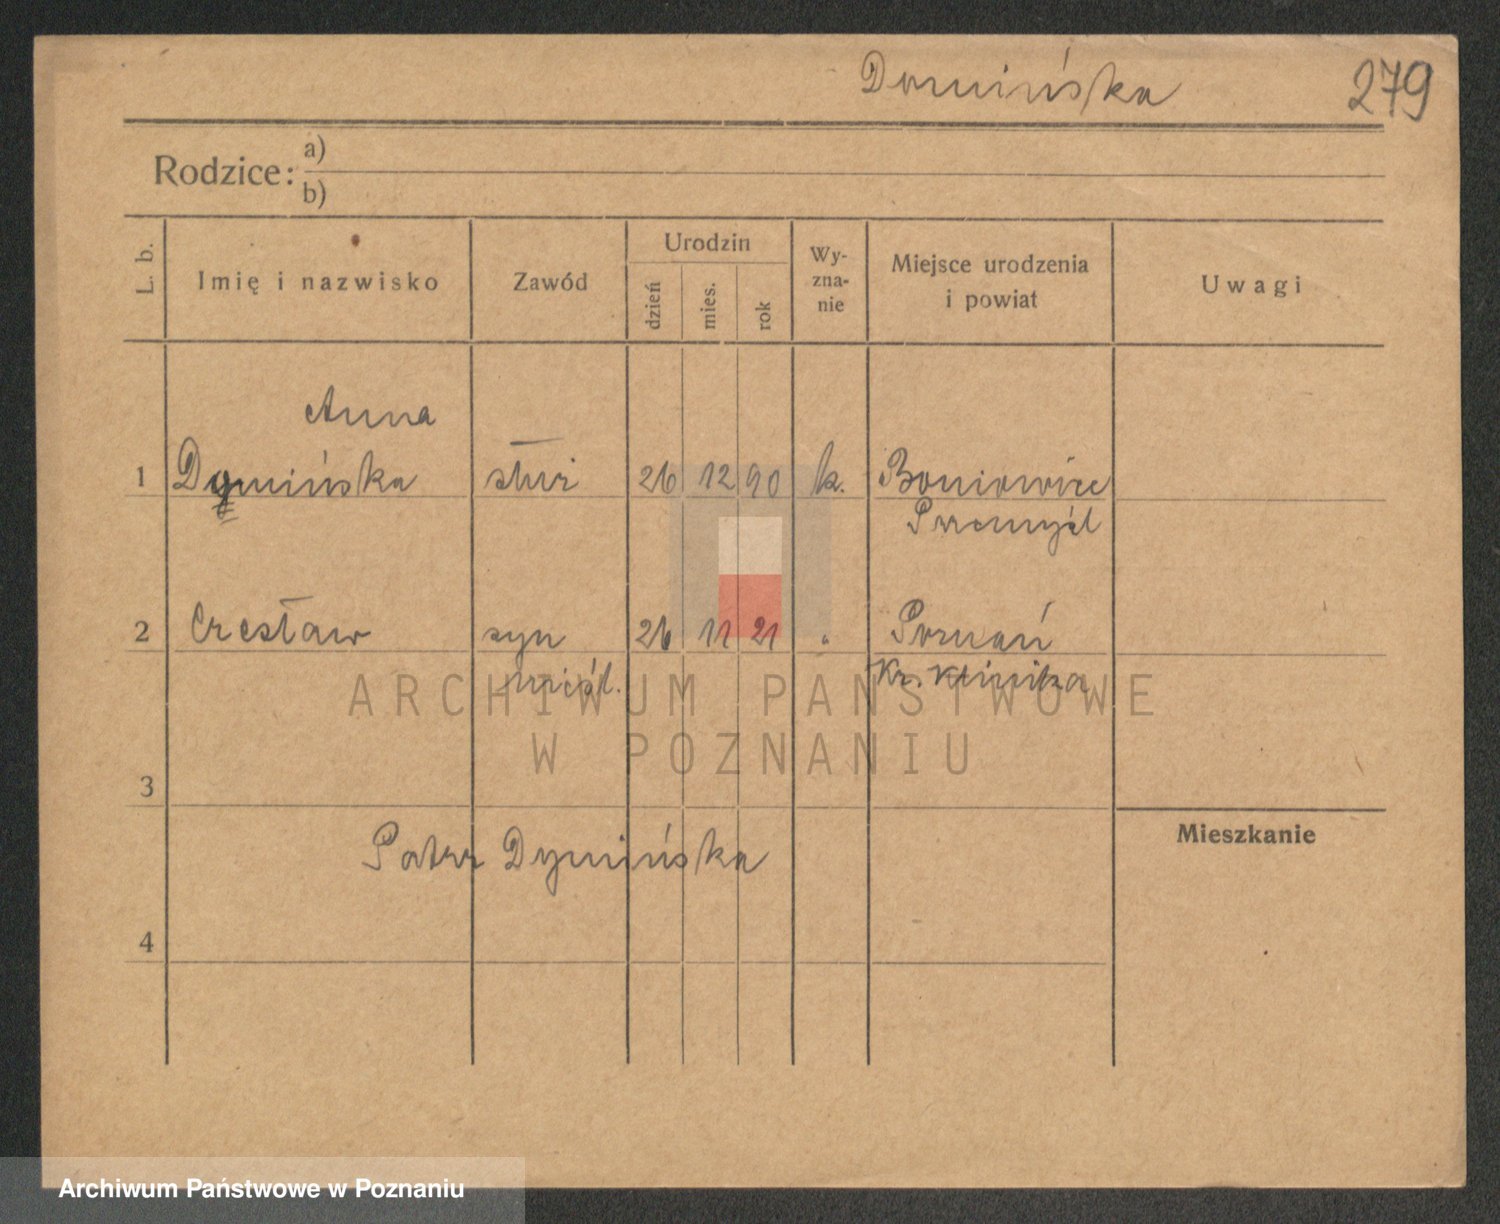 Domińska
279
Rodzice:
a)
b)
L. b.
Imię i nazwisko
Zawód
Urodzin
dzień
mies.
rok
Wy-
zna-
nie
Miejsce urodzenia
i powiat
Uwagi
Anna
1 Dymińska służ 26 12 90 k. Boniowice
Przemyśl
2 Czesław syn 26 11 21 " Poznań
nieśl. Kr. Klinika
ARCHIWUM PAŃSTWOWE
W POZNANIU
3
Mieszkanie
Patrz Dymińska
4
Archiwum Państwowe w Poznaniu